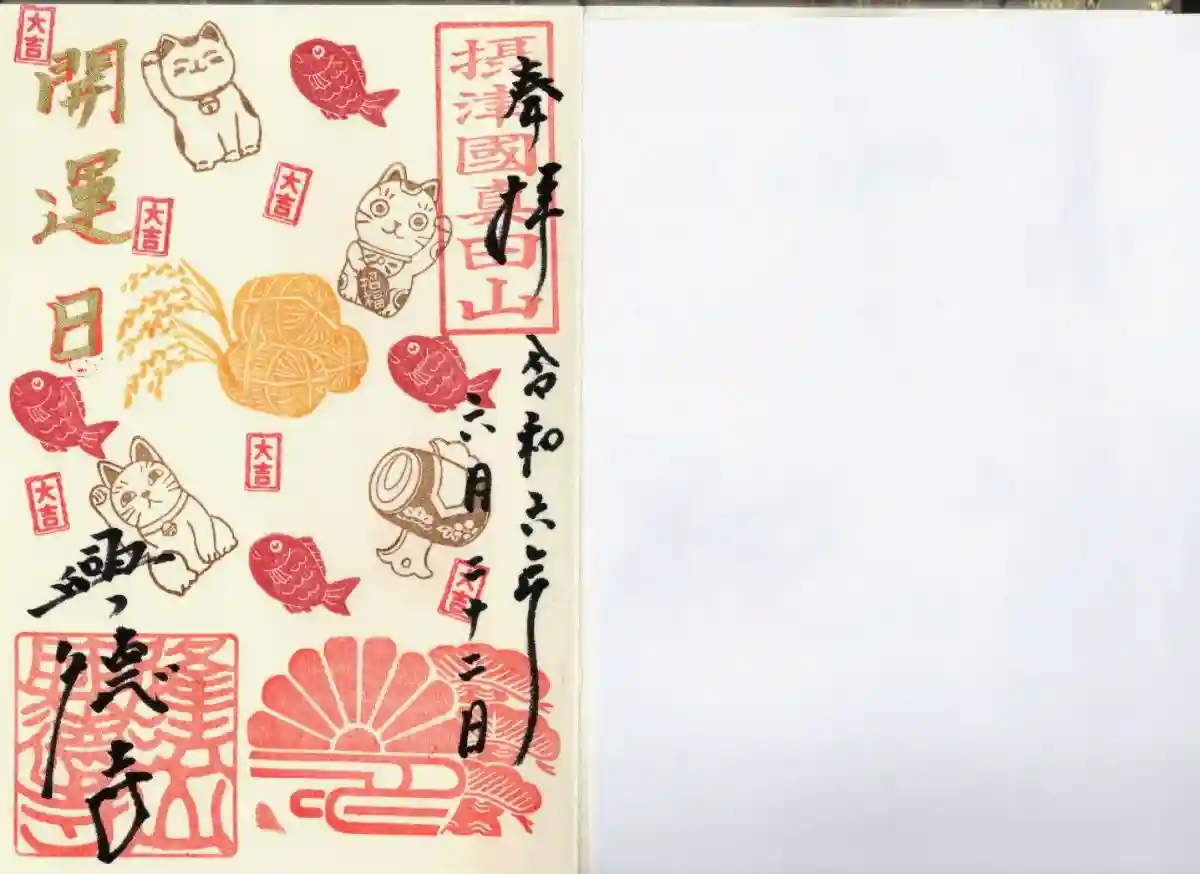 摂津國真田山
奉拝
令和六年
六月二十二日
招福
大吉
大吉
大吉
大吉
大吉
大吉
開運日
興徳寺